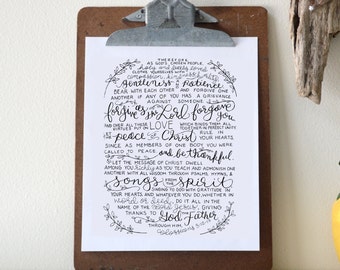 THEREFORE,
AS GOD'S CHOSEN PEOPLE,
holy and dearly loved
CLOTHE YOURSELVES WITH
COMPASSION, kindness, humility
Gentleness & Patience
BEAR WITH EACH OTHER AND FORGIVE ONE
ANOTHER IF ANY OF YOU HAS A GRIEVANCE
AGAINST SOMEONE.
forgive as the Lord forgave you
AND OVER ALL THESE VIRTUES PUT ON LOVE WHICH BINDS THEM ALL TOGETHER IN PERFECT UNITY
peace of Christ RULE IN YOUR HEARTS
SINCE AS MEMBERS OF ONE BODY YOU WERE
CALLED TO PEACE and be thankful.
LET THE MESSAGE OF CHRIST DWELL
AMONG YOU Richly AS YOU TEACH AND ADMONISH ONE
ANOTHER WITH ALL WISDOM THROUGH PSALMS, HYMNS, &
Songs FROM THE Spirit
SINGING TO GOD WITH GRATITUDE IN
YOUR HEARTS. AND WHATEVER YOU DO, WHETHER IN
word or deed, DO IT ALL IN THE
NAME OF THE Lord Jesus, GIVING
THANKS TO God the Father
THROUGH HIM.
Colossians 3:12-17